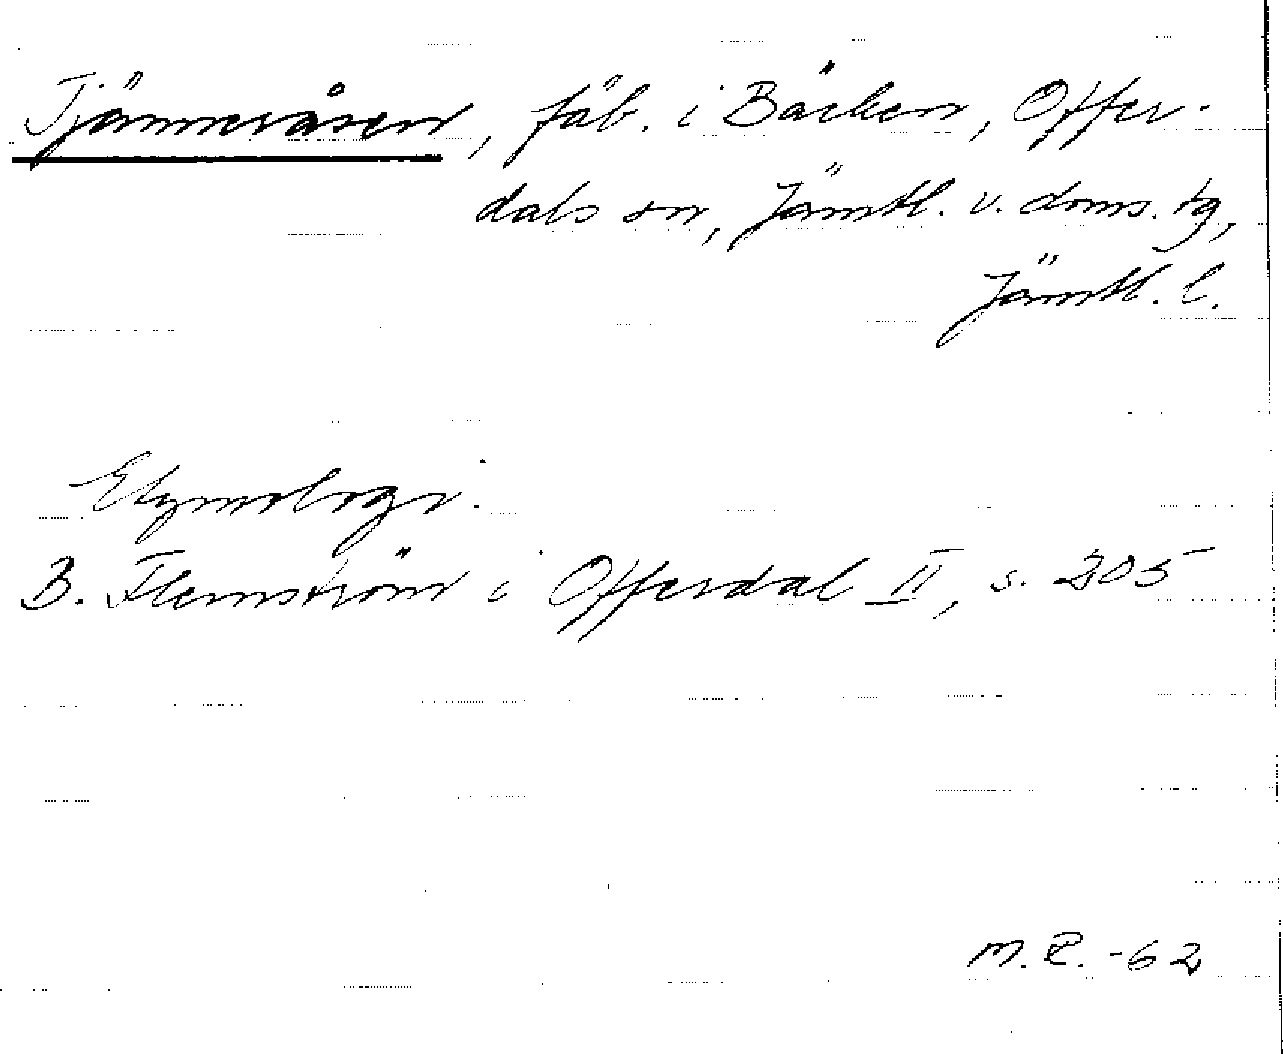 Tjärmeråsen, fäb. i Bäcken, Offer-
dals sn, Jämtl. v. doms. tg,
Jämtl. l.
Etymologi:
B. Flemström i Offerdal II, s. 205
M.R. -62